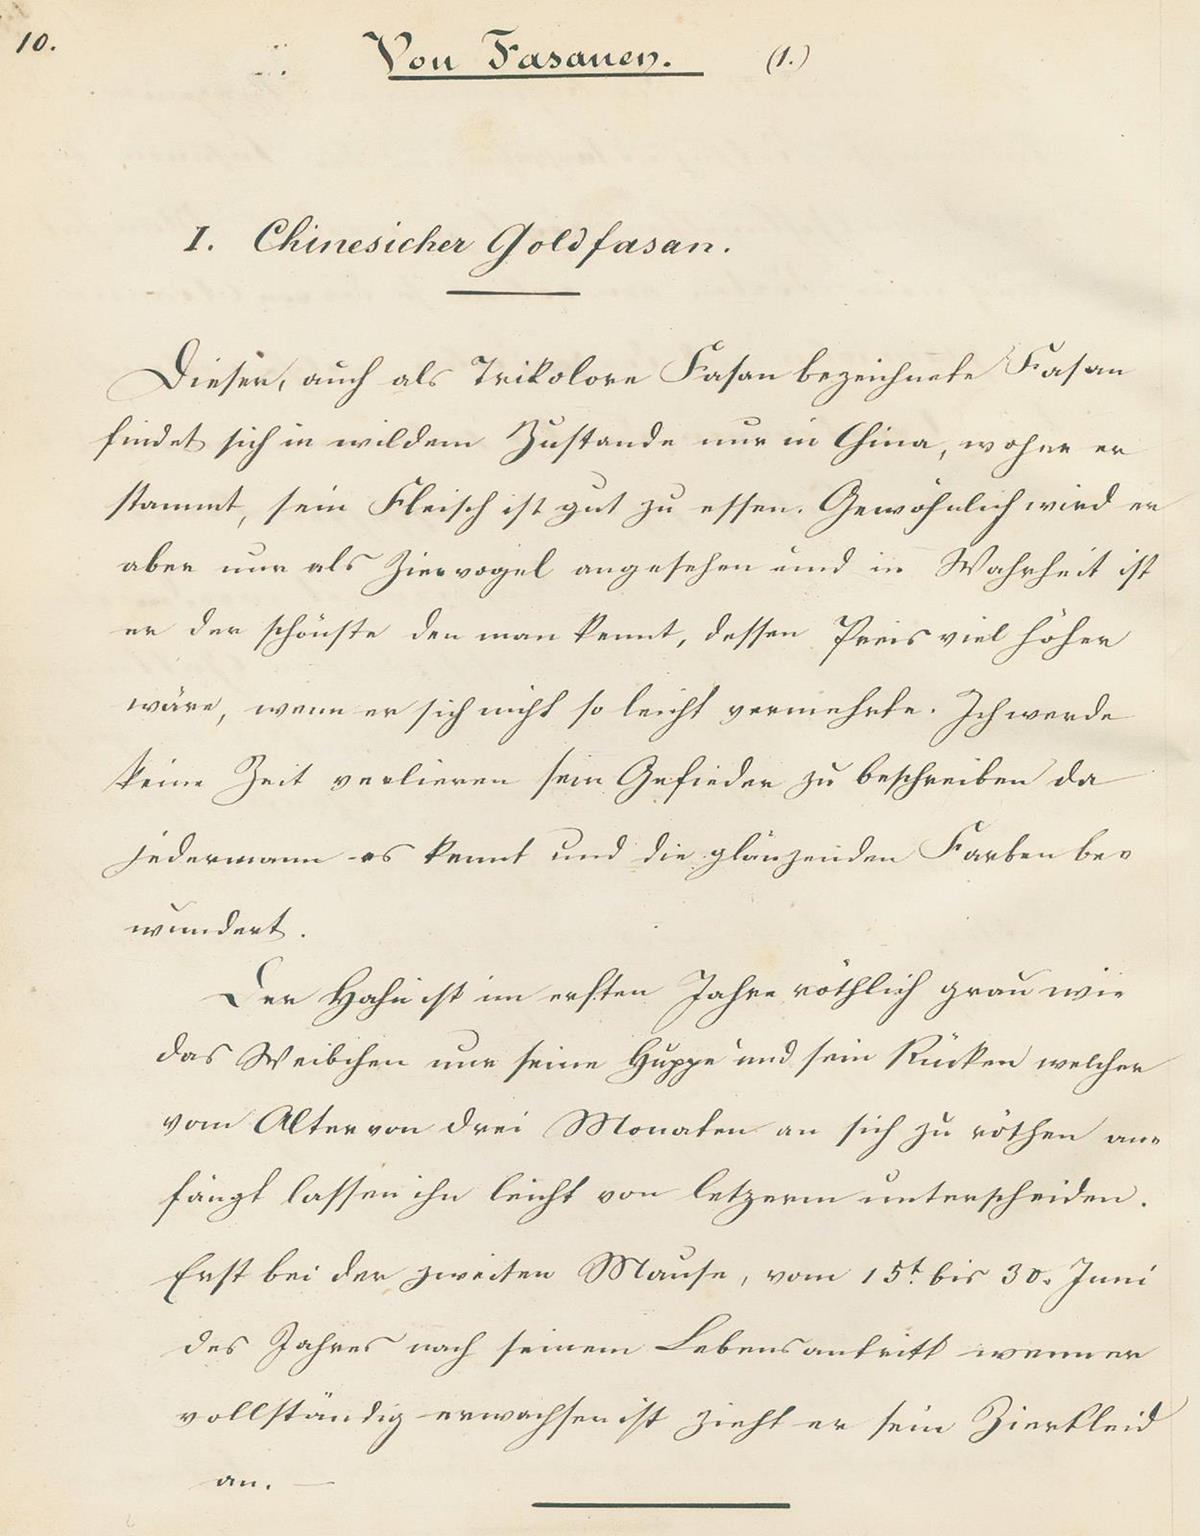 10.
Von Fasanen. (1.)
I. Chinesicher Goldfasan.
Dieser, auch als Trikolore Fasan bezeichnete Fasan
findet sich in wildem Zustande nur in China, woher er
stammt, sein Fleisch ist gut zu essen. Gewöhnlich wird er
aber nur als Ziervogel angesehen und in Wahrheit ist
er der schönste den man kennt, dessen Preis viel höher
wäre, wenn er sich nicht so leicht vermehrte. Ich werde
keine Zeit verlieren sein Gefieder zu beschreiben da
jedermann es kennt und die glänzenden Farben be-
wundert.
Der Hahn ist im ersten Jahre röthlich grau wie
das Weibchen nur seine Huppe und sein Rücken welcher
vom Alter von drei Monaten an sich zu röthen an-
fängt lassen ihn leicht von letzerm unterscheiden.
Erst bei der zweiten Mause, vom 15t. bis 30. Juni
des Jahres nach seinem Lebensantritt wenn er
vollständig erwachsen ist zieht er sein Zierkleid
an. —